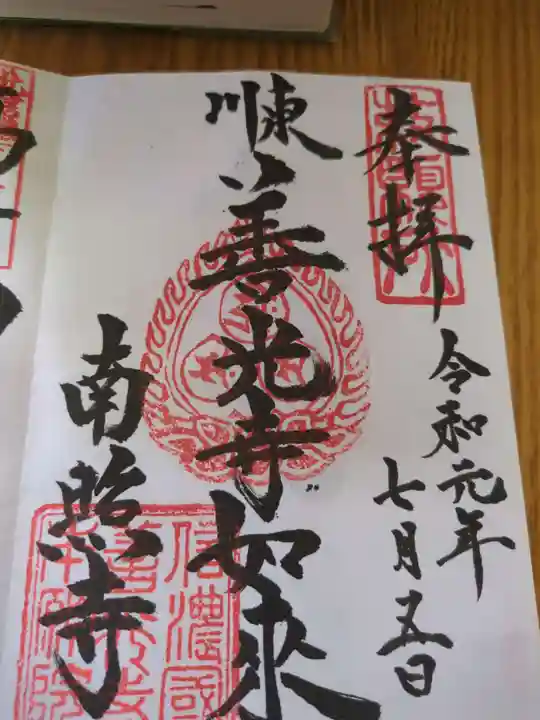 奉拝
令和元年
七月五日
川東
善光寺如来
南照寺
信濃國